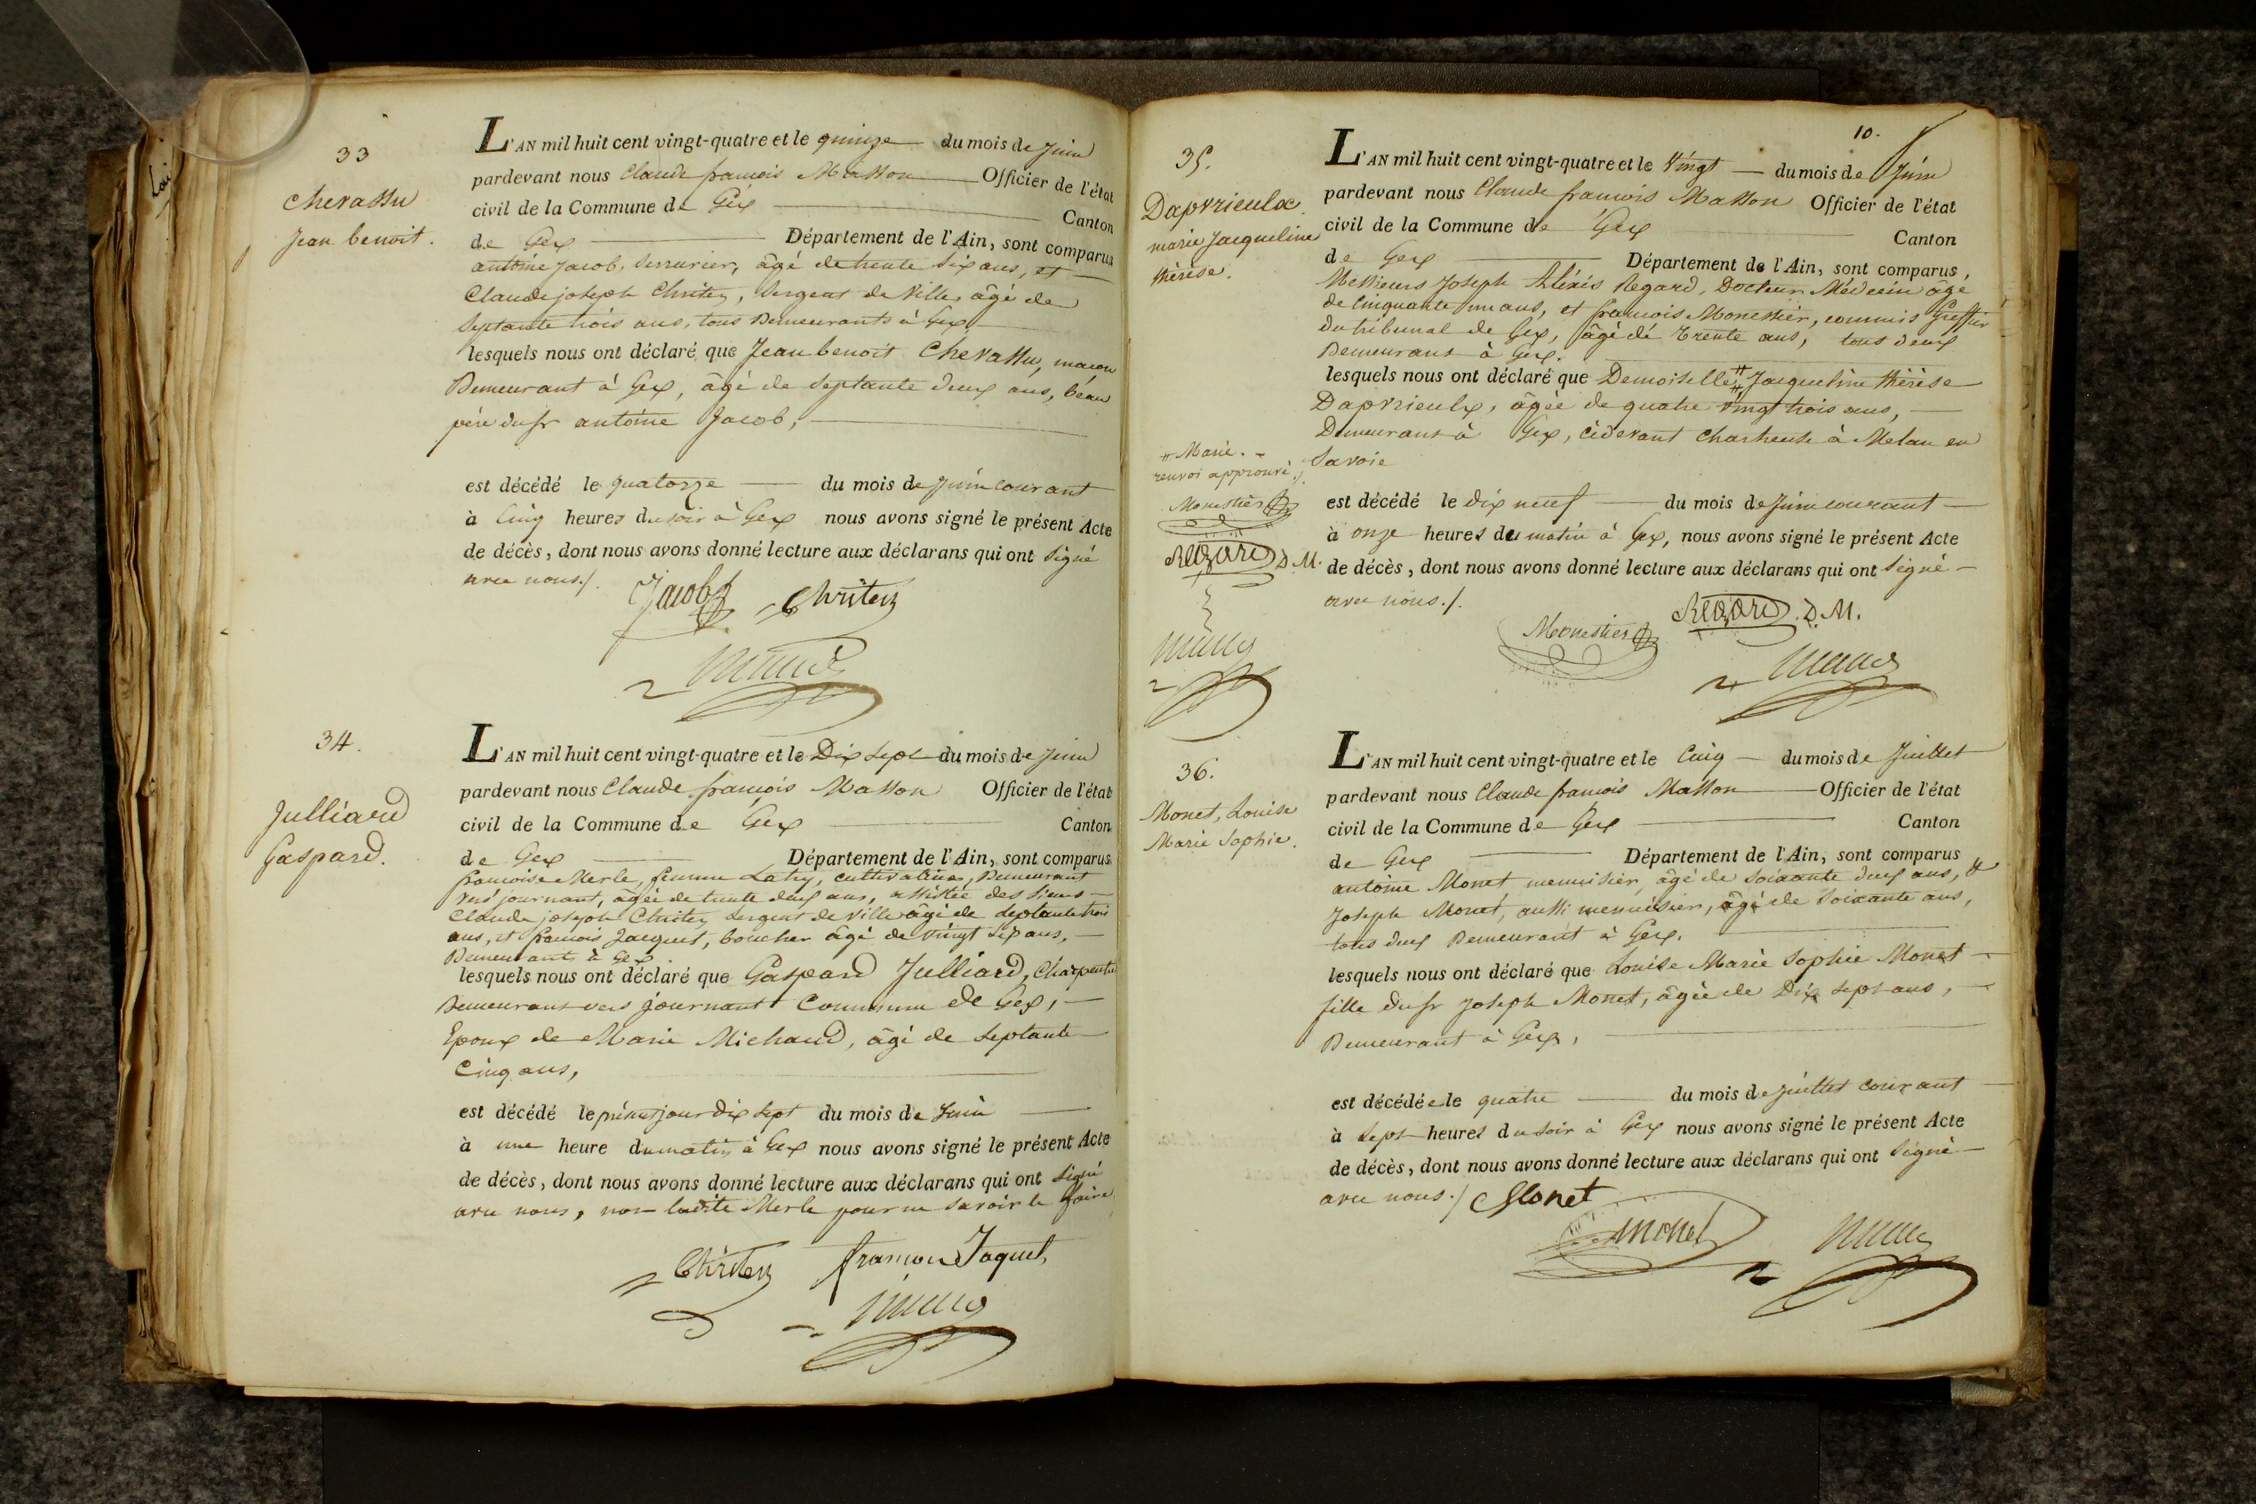 33
Chevassu
Jean benoit.
L'AN mil huit cent vingt-quatre et le quinze du mois de Juin
pardevant nous Claude françois Masson Officier de l'état
civil de la Commune de Gex Canton
de Gex Département de l'Ain, sont comparus
antoine Jacob, Serrurier, âgé de trente six ans, et
Claude joseph Christin, Sergent de Ville, âgé de
Septante trois ans, tous Demeurants à Gex,
lesquels nous ont déclaré que Jean benoit Chevassu, maçon
Demeurant à Gex, âgé de Septante deux ans, béau
père du sr antoine Jacob,
est décédé le quatorze du mois de Juin courant
à Cinq heures du soir à Gex nous avons signé le présent Acte
de décès, dont nous avons donné lecture aux déclarans qui ont Signé
avec nous./.
Jacob
34.
Julliard
Gaspard.
L'AN mil huit cent vingt-quatre et le Dix Sept du mois de Juin
pardevant nous Claude françois Masson Officier de l'état
civil de la Commune de Gex Canton
de Gex Département de l'Ain, sont comparus
francoise Merle, femme Laty, cultivatrice, Demeurant
vers journant, âgée de trente deux ans, assistée des Sieurs
Claude joseph Christin Sergent de Ville âgé de Septante trois
ans, et françois Jacquet, boucher âgé de vingt six ans,
Demeurants à Gex
lesquels nous ont déclaré que Gaspard Julliard, Charpentier
Demeurant vers journant Commune de Gex,
Epoux de Marie Michaud, âgé de Septante
Cinq ans,
est décédé le présent jour dix Sept du mois de Juin
à une heure du matin à Gex nous avons signé le présent Acte
de décès, dont nous avons donné lecture aux déclarans qui ont Signé
avec nous, non ladite Merle pour ne savoir le faire
françois Jaquet
10.
35.
Daprrieulx
marie Jacqueline
thérèse.
# Marie.
renvoi approuvé ./.
Monestier
Regard D.M.
L'AN mil huit cent vingt-quatre et le Vingt du mois de Juin
pardevant nous Claude francois Masson Officier de l'état
civil de la Commune de Gex Canton
de Gex Département de l'Ain, sont comparus,
Messieurs Joseph Aléxis Regard, Docteur Médecin âgé
de Cinquante un ans, et françois Monestier, commis Greffier
du tribunal de Gex, âgé de trente ans, tous deux
Demeurans à Gex.
lesquels nous ont déclaré que Demoiselle # Jacqueline thérèse
Daprrieulx, âgée de quatre vingt trois ans,
Demeurant à Gex, cidevant Chartreuse à Melan en
Savoie
est décédé le dix neuf du mois de Juin courant
à onze heures du matin à Gex, nous avons signé le présent Acte
de décès, dont nous avons donné lecture aux déclarans qui ont Signé
avec nous./.
Monestier
Regard .D.M.
36.
Monet, Louise
Marie Sophie.
L'AN mil huit cent vingt-quatre et le Cinq du mois de Juillet
pardevant nous Claude francois Masson Officier de l'état
civil de la Commune de Gex Canton
de Gex Département de l'Ain, sont comparus
antoine Monet menuisier, âgé de Soixante deux ans, &
Joseph Monet, aussi menuisier, âgé de Soixante ans,
tous deux Demeurant à Gex.
lesquels nous ont déclaré que Louise Marie Sophie Monet
fille du sr Joseph Monet, âgée de Dix Sept ans,
Demeurant à Gex,
est décédée le quatre du mois de Juillet courant
à Sept heures du Soir à Gex nous avons signé le présent Acte
de décès, dont nous avons donné lecture aux déclarans qui ont Signé
avec nous./ Monet
Monet